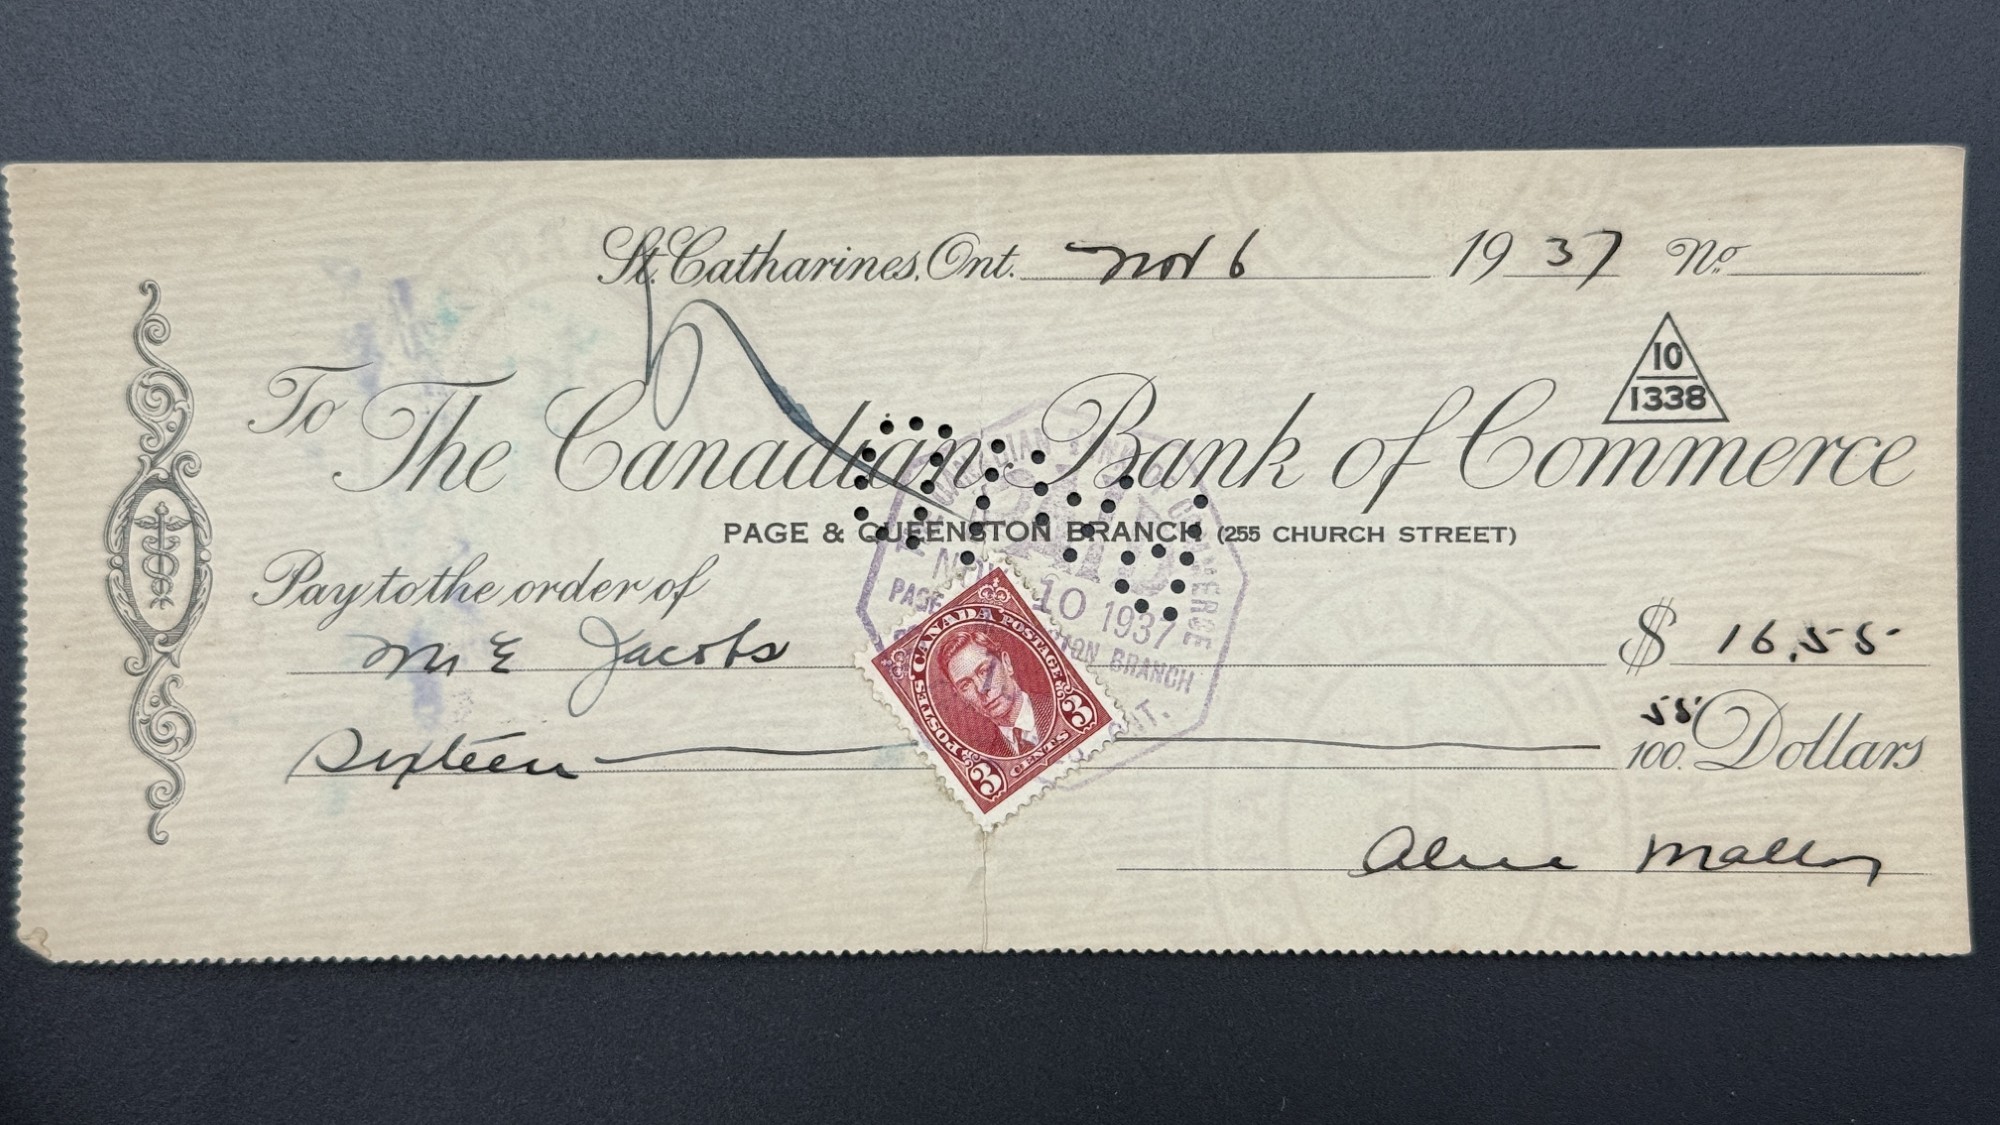 St. Catharines, Ont. Nov 6 1937 No.
10
1338
To The Canadian Bank of Commerce
PAGE & QUEENSTON BRANCH (255 CHURCH STREET)
Pay to the order of
M E Jacobs $ 16.55
Sixteen 55/100 Dollars
Malloy
THE CANADIAN BANK OF COMMERCE
PAID
NOV 10 1937
PAGE & QUEENSTON BRANCH
ONT.
CANADA POSTAGE
POSTES
3 CENTS 3